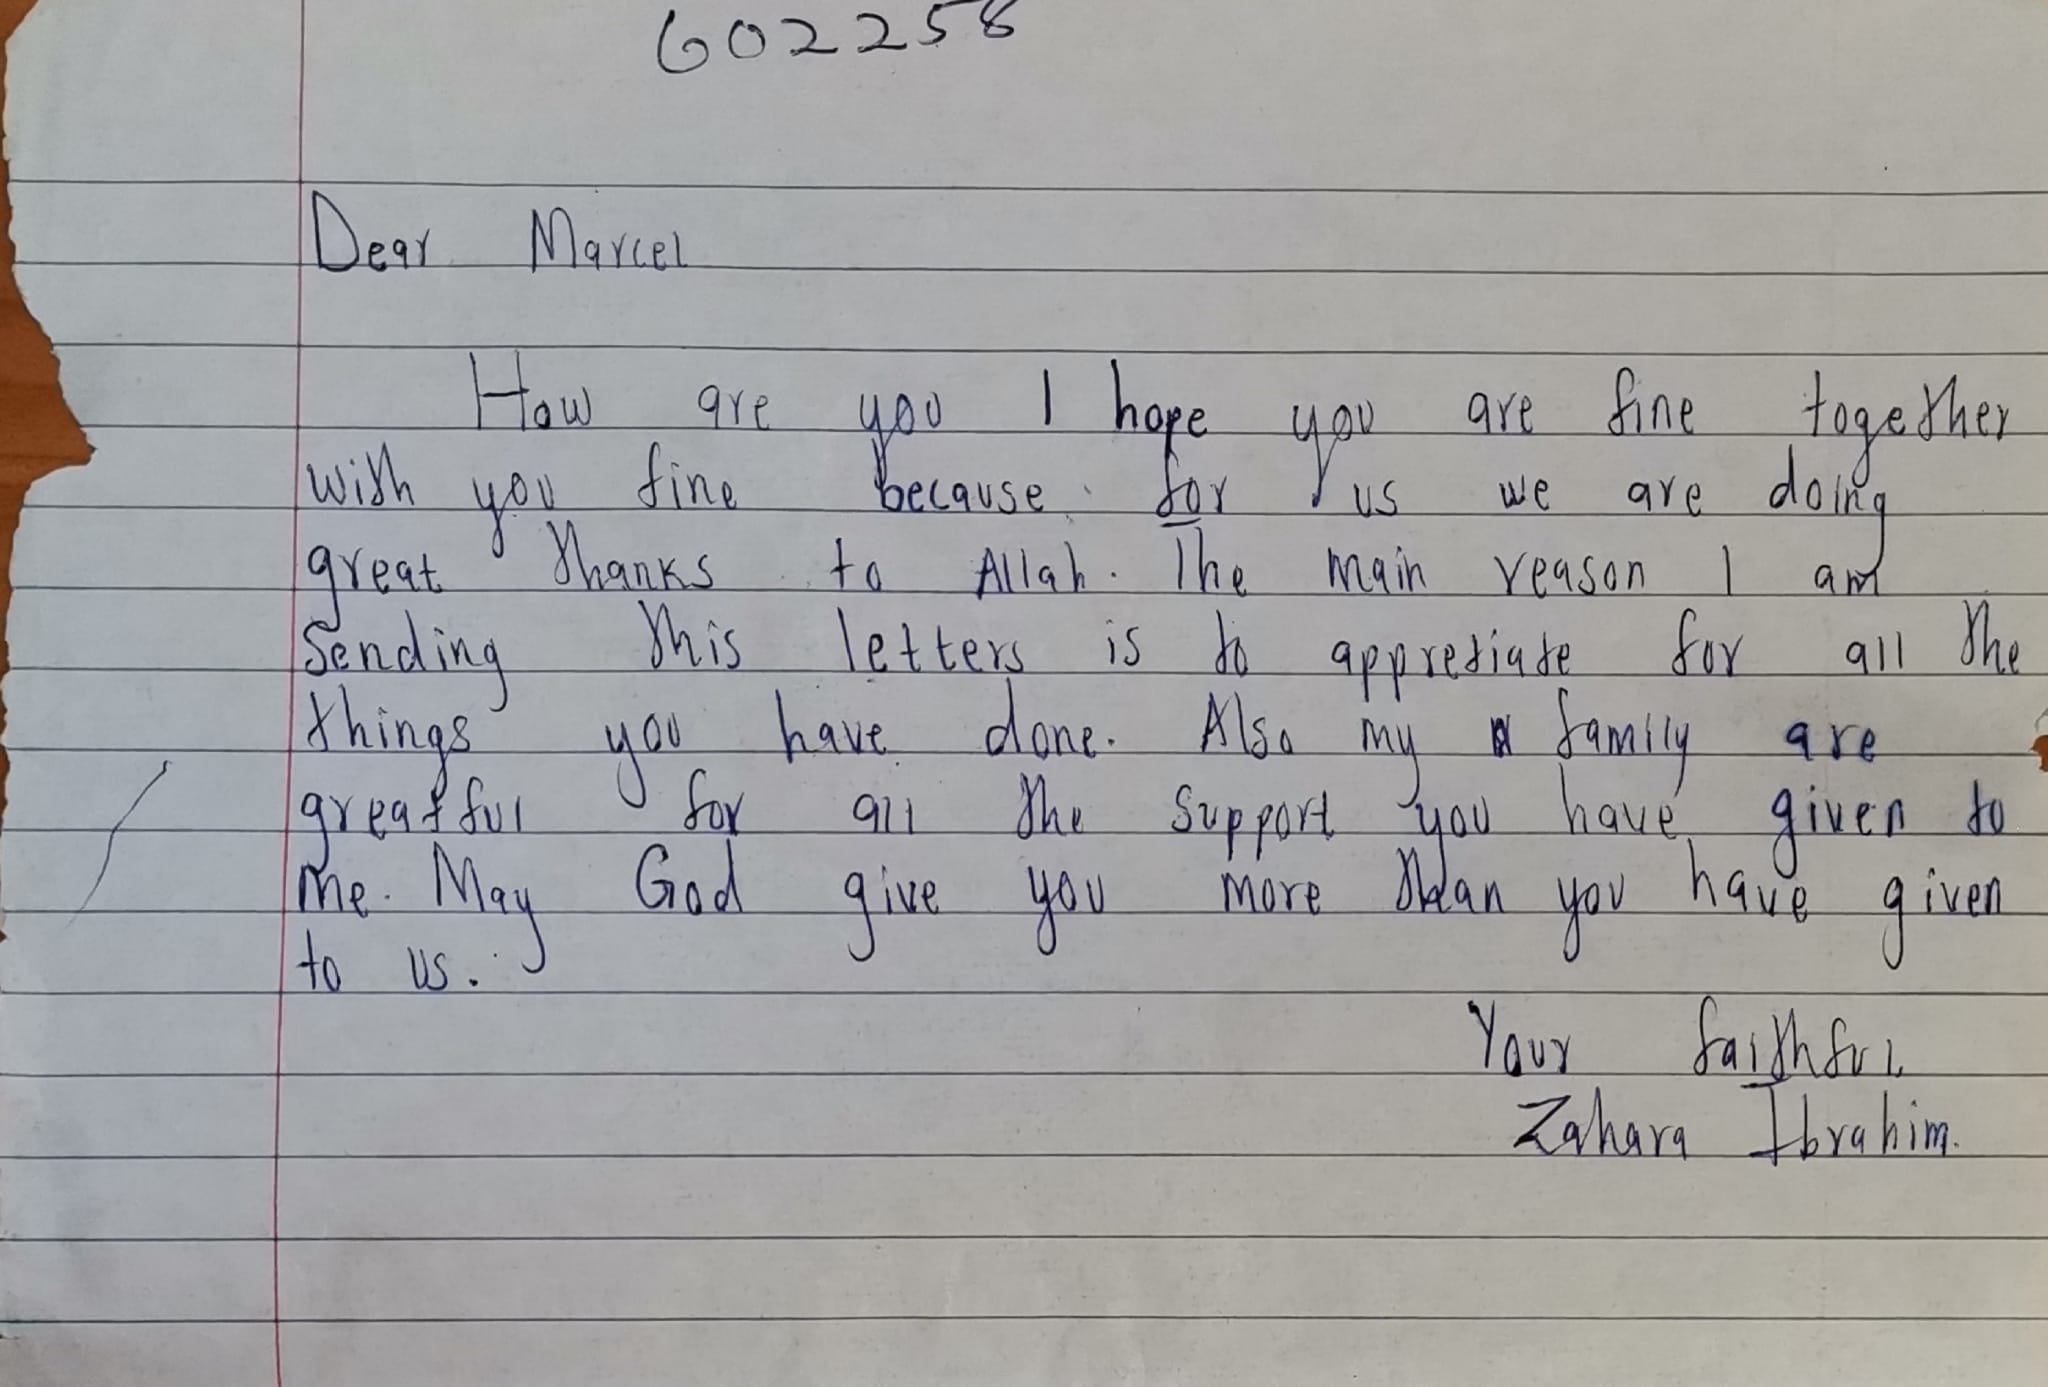 602258
Dear Marcel
How are you I hope you are fine together
with you fine because for us we are doing
great thanks to Allah. The main reason I am
Sending this letters is to appretiate for all the
things you have done. Also my family are
greatful for all the support you have given to
me. May God give you more than you have given
to us.
Your faithful,
Zahara Ibrahim.